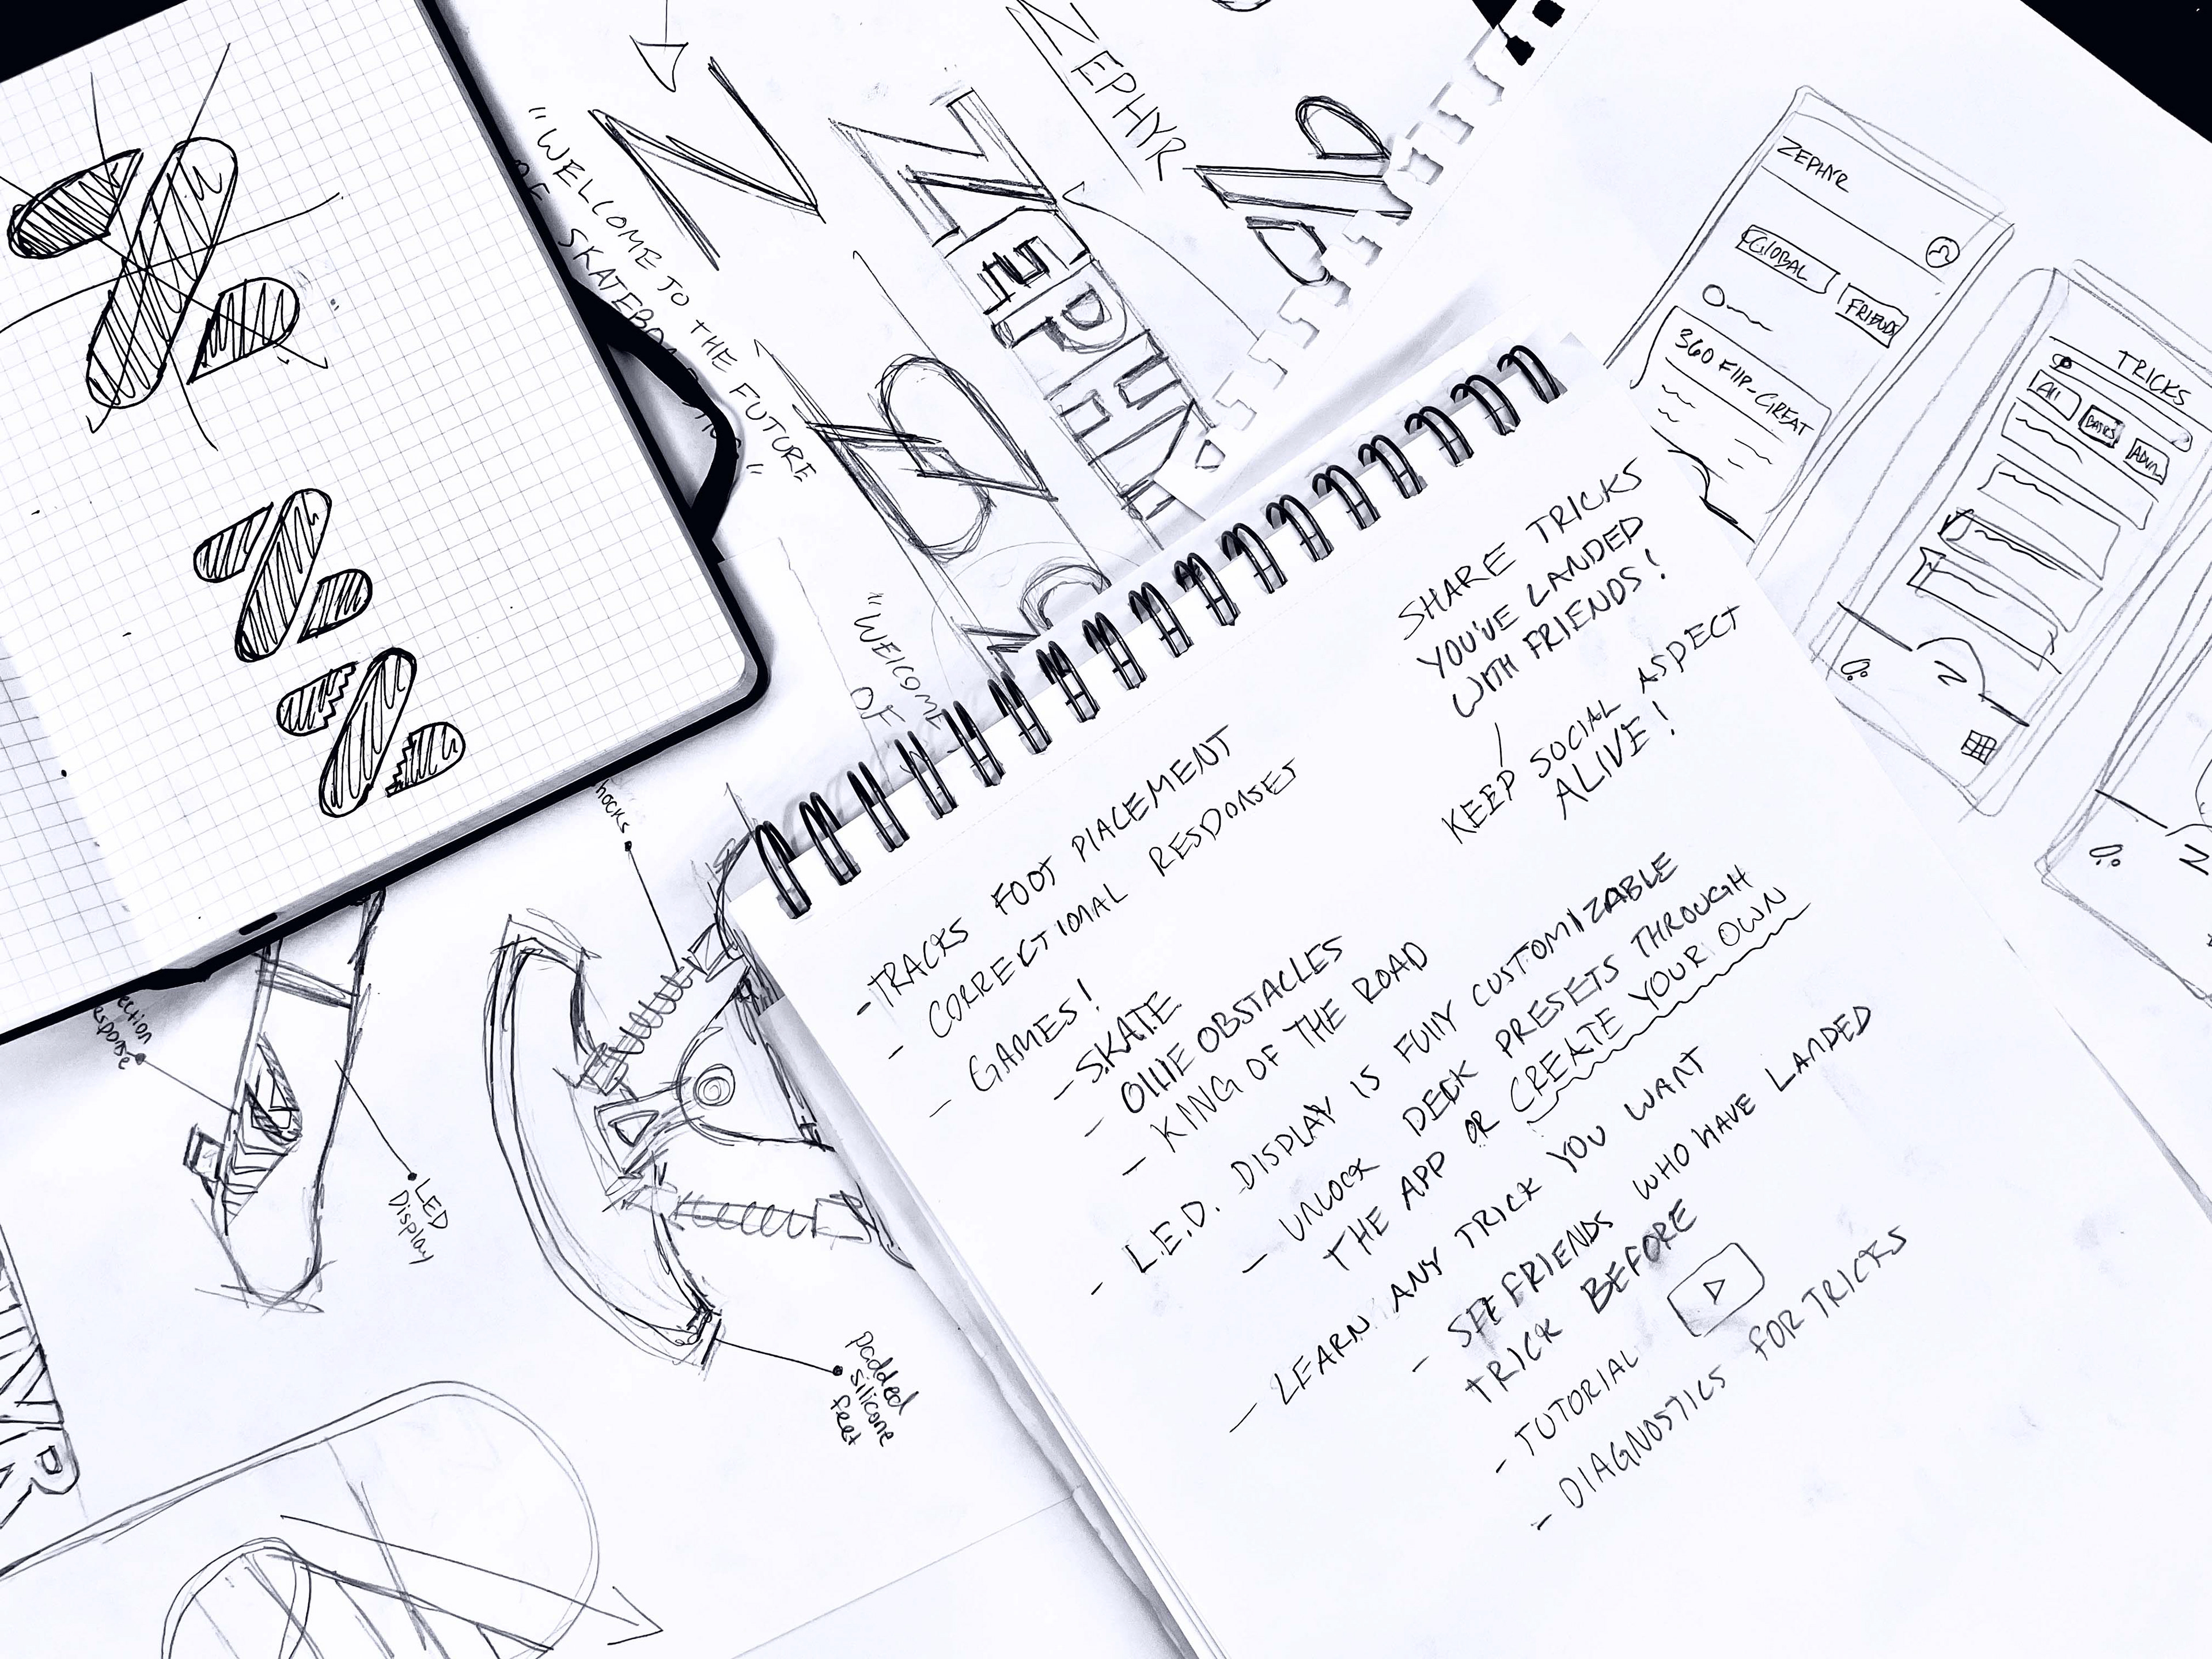 "WELCOME TO THE FUTURE
OF SKATEBOARDING"
N
ZEPHYR
ZEPHYR
"WELCOME
OF
ZEPHYR
GLOBAL
FRIENDS
360 FLIP-GREAT
TRICKS
All
BASICS
ADVN.
N
N
SHARE TRICKS
YOU'VE LANDED
WITH FRIENDS!
KEEP SOCIAL ASPECT
ALIVE!
-TRACKS FOOT PLACEMENT
- CORRECTIONAL RESPONSES
- GAMES!
- SKATE
- OLLIE OBSTACLES
- KING OF THE ROAD
- L.E.D. DISPLAY IS FULLY CUSTOMIZABLE
- UNLOCK DECK PRESETS THROUGH
THE APP OR CREATE YOUR OWN
- LEARN ANY TRICK YOU WANT
- SEE FRIENDS WHO HAVE LANDED
TRICK BEFORE
- TUTORIAL
- DIAGNOSTICS FOR TRICKS
hocks
ection
esponse
LED
Display
padded
silicone
feet